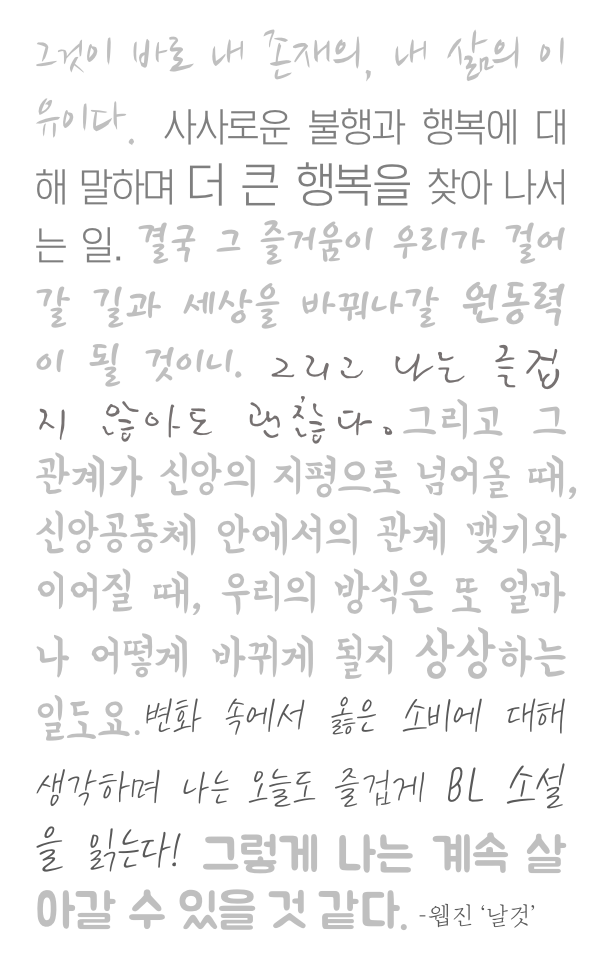 그것이 바로 내 존재의, 내 삶의 이
유이다. 사사로운 불행과 행복에 대
해 말하며 더 큰 행복을 찾아 나서
는 일. 결국 그 즐거움이 우리가 걸어
갈 길과 세상을 바꿔나갈 원동력
이 될 것이니. 그리고 나는 즐겁
지 않아도 괜찮다. 그리고 그
관계가 신앙의 지평으로 넘어올 때,
신앙공동체 안에서의 관계 맺기와
이어질 때, 우리의 방식은 또 얼마
나 어떻게 바뀌게 될지 상상하는
일도요. 변화 속에서 옳은 소비에 대해
생각하며 나는 오늘도 즐겁게 BL 소설
을 읽는다! 그렇게 나는 계속 살
아갈 수 있을 것 같다. -웹진 ‘날것’